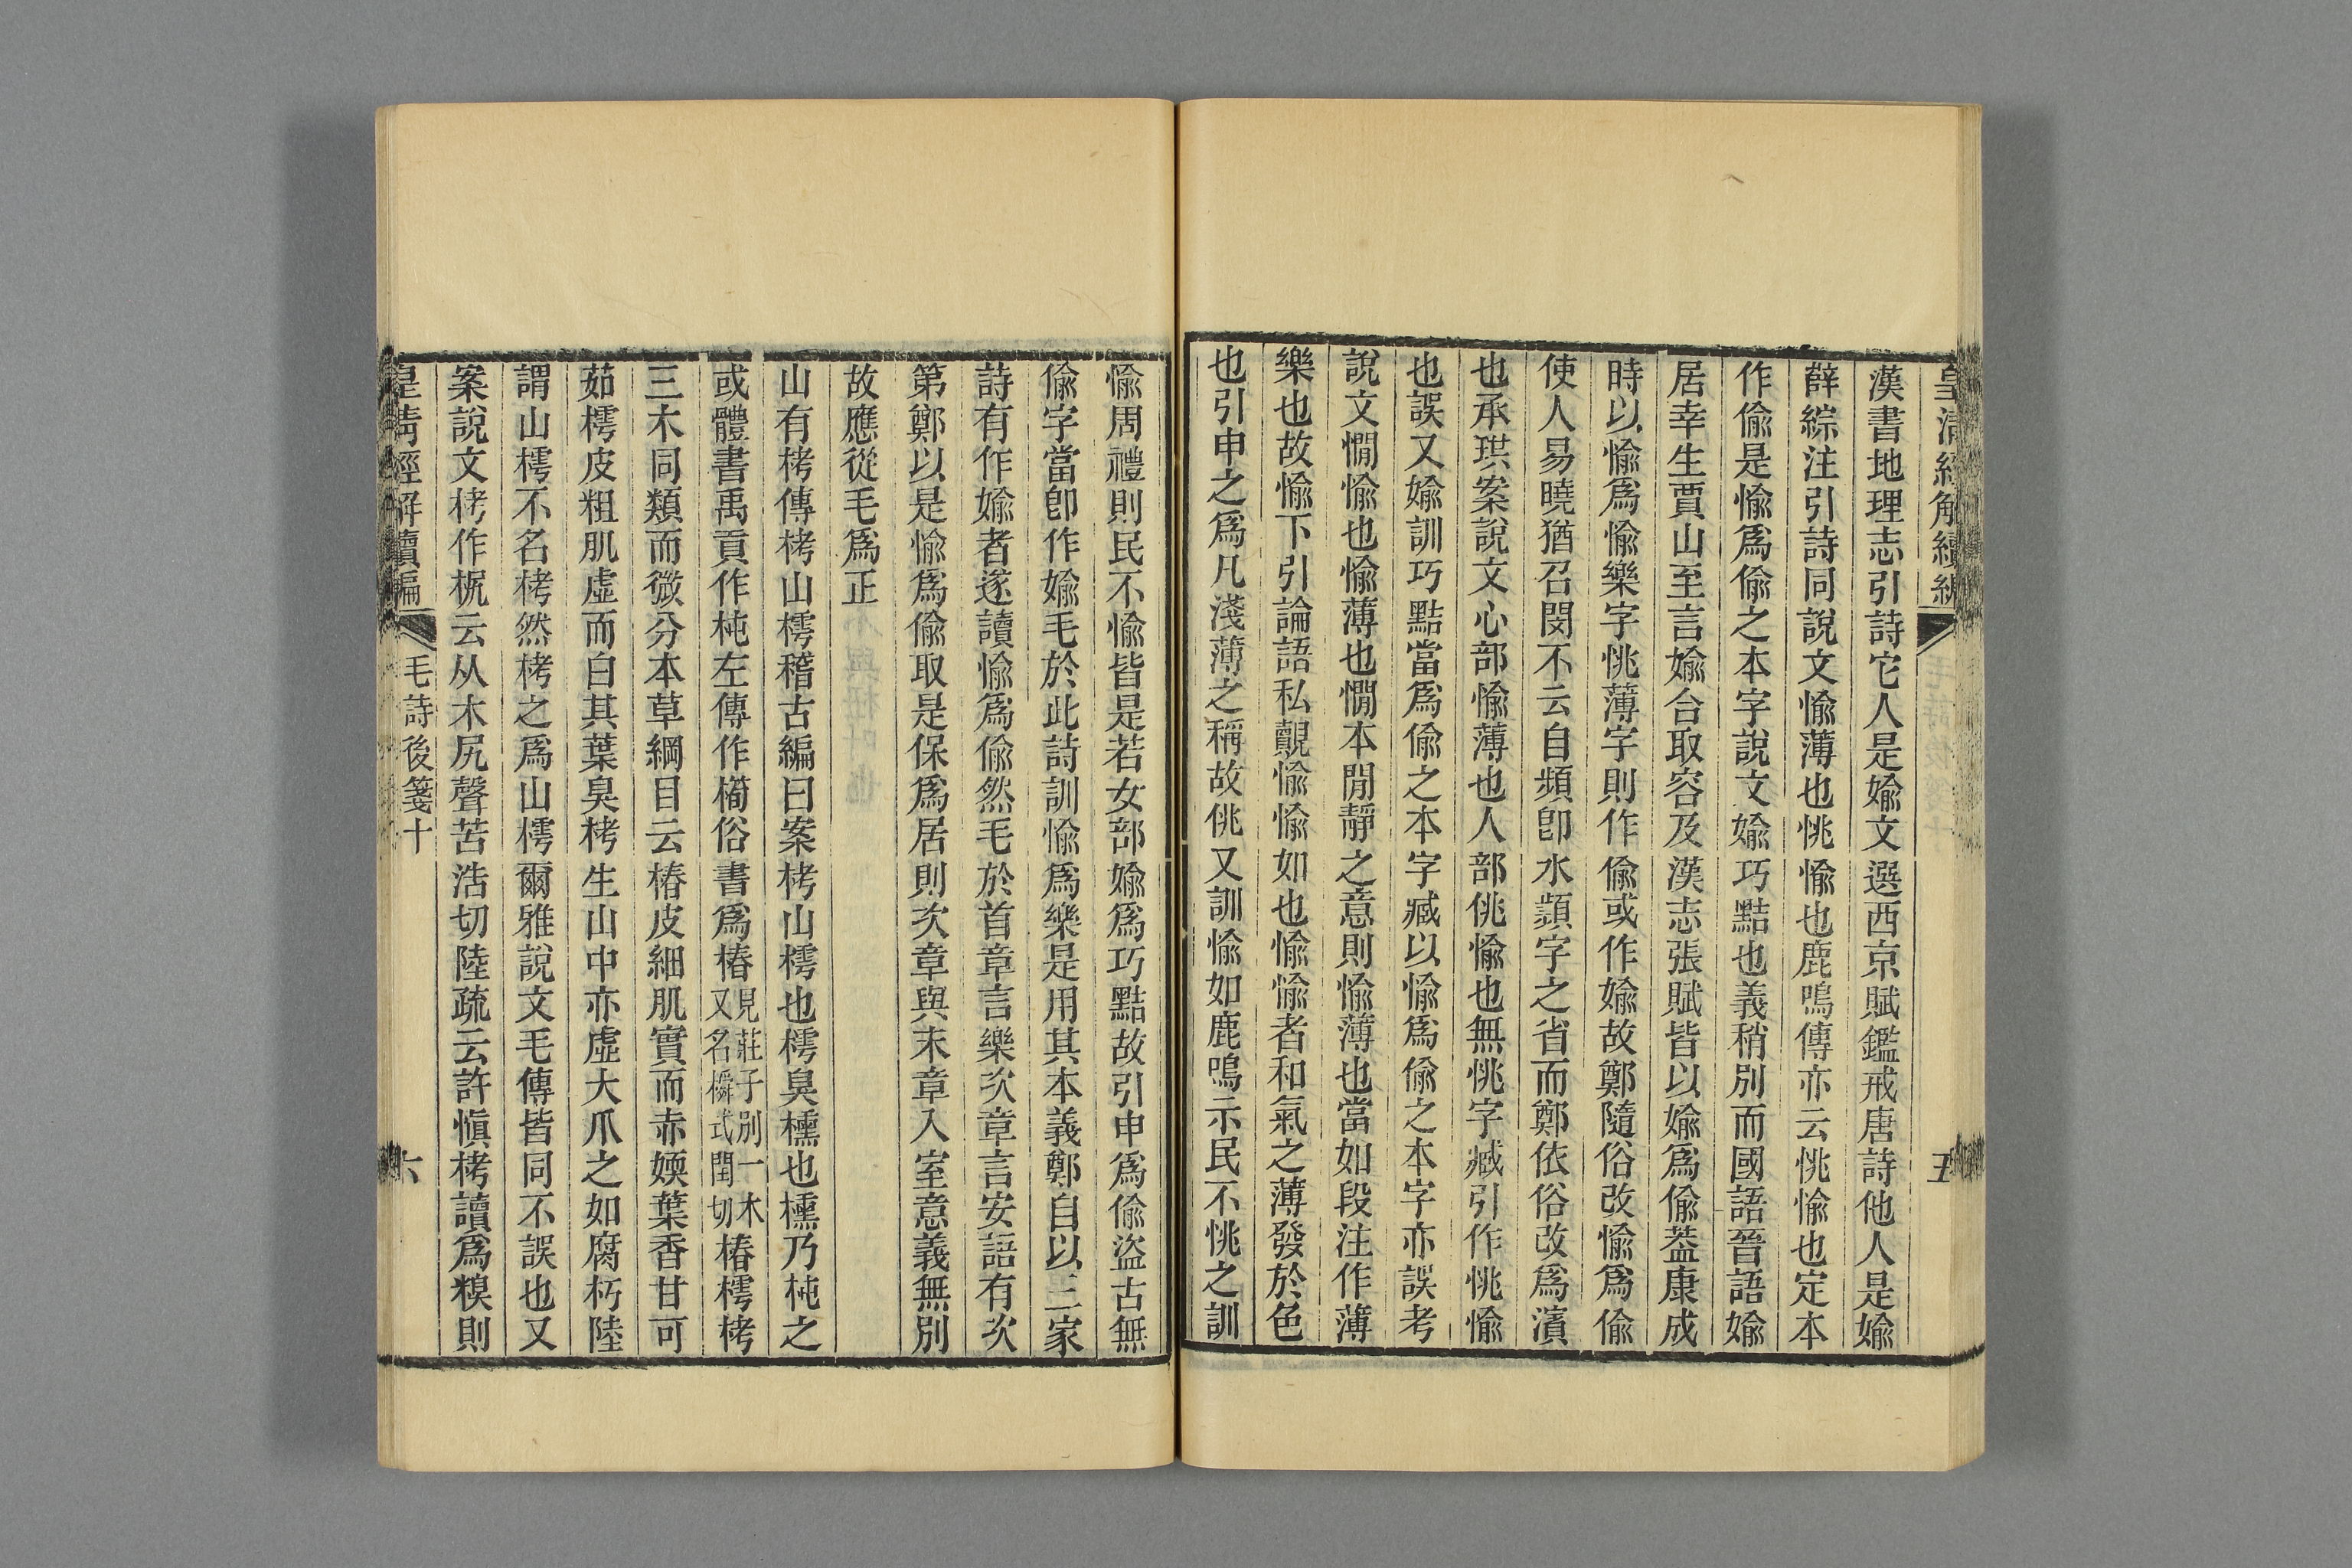 皇清經解續編
五
漢書地理志引詩它人是媮文選西京賦鑑戒唐詩他人是媮
薛綜注引詩同說文愉薄也恌愉也鹿鳴傳亦云恌愉也定本
作偷是愉爲偷之本字說文媮巧黠也義稍別而國語晉語媮
居幸生賈山至言媮合取容及漢志張賦皆以媮爲偷葢康成
時以愉爲愉樂字恌薄字則作偷或作媮故鄭隨俗改愉爲偷
使人易曉猶召閔不云自頻卽水顮字之省而鄭依俗改爲濱
也承珙案說文心部愉薄也人部佻愉也無恌字臧引作恌愉
也誤又媮訓巧黠當爲偷之本字臧以愉爲偷之本字亦誤考
說文憪愉也愉薄也憪本閒靜之意則愉薄也當如段注作薄
樂也故愉下引論語私覿愉愉如也愉愉者和氣之薄發於色
也引申之爲凡淺薄之稱故佻又訓愉如鹿鳴示民不恌之訓
愉周禮則民不愉皆是若女部媮爲巧黠故引申爲偷盜古無
偷字當卽作媮毛於此詩訓愉爲樂是用其本義鄭自以三家
詩有作媮者遂讀愉爲偷然毛於首章言樂次章言安語有次
第鄭以是愉爲偷取是保爲居則次章與末章入室意義無別
故應從毛爲正
山有栲傳栲山樗稽古編曰案栲山樗也樗臭櫄也櫄乃杶之
或體書禹貢作杶左傳作橁俗書爲椿見莊子別一木又名橓式閏切椿樗栲
三木同類而微分本草綱目云椿皮細肌實而赤媆葉香甘可
茹樗皮粗肌虛而白其葉臭栲生山中亦虛大爪之如腐朽陸
謂山樗不名栲然栲之爲山樗爾雅說文毛傳皆同不誤也又
案說文栲作㮇云从木尻聲苦浩切陸疏云許愼栲讀爲糗則
皇清經解續編
毛詩後箋十
六